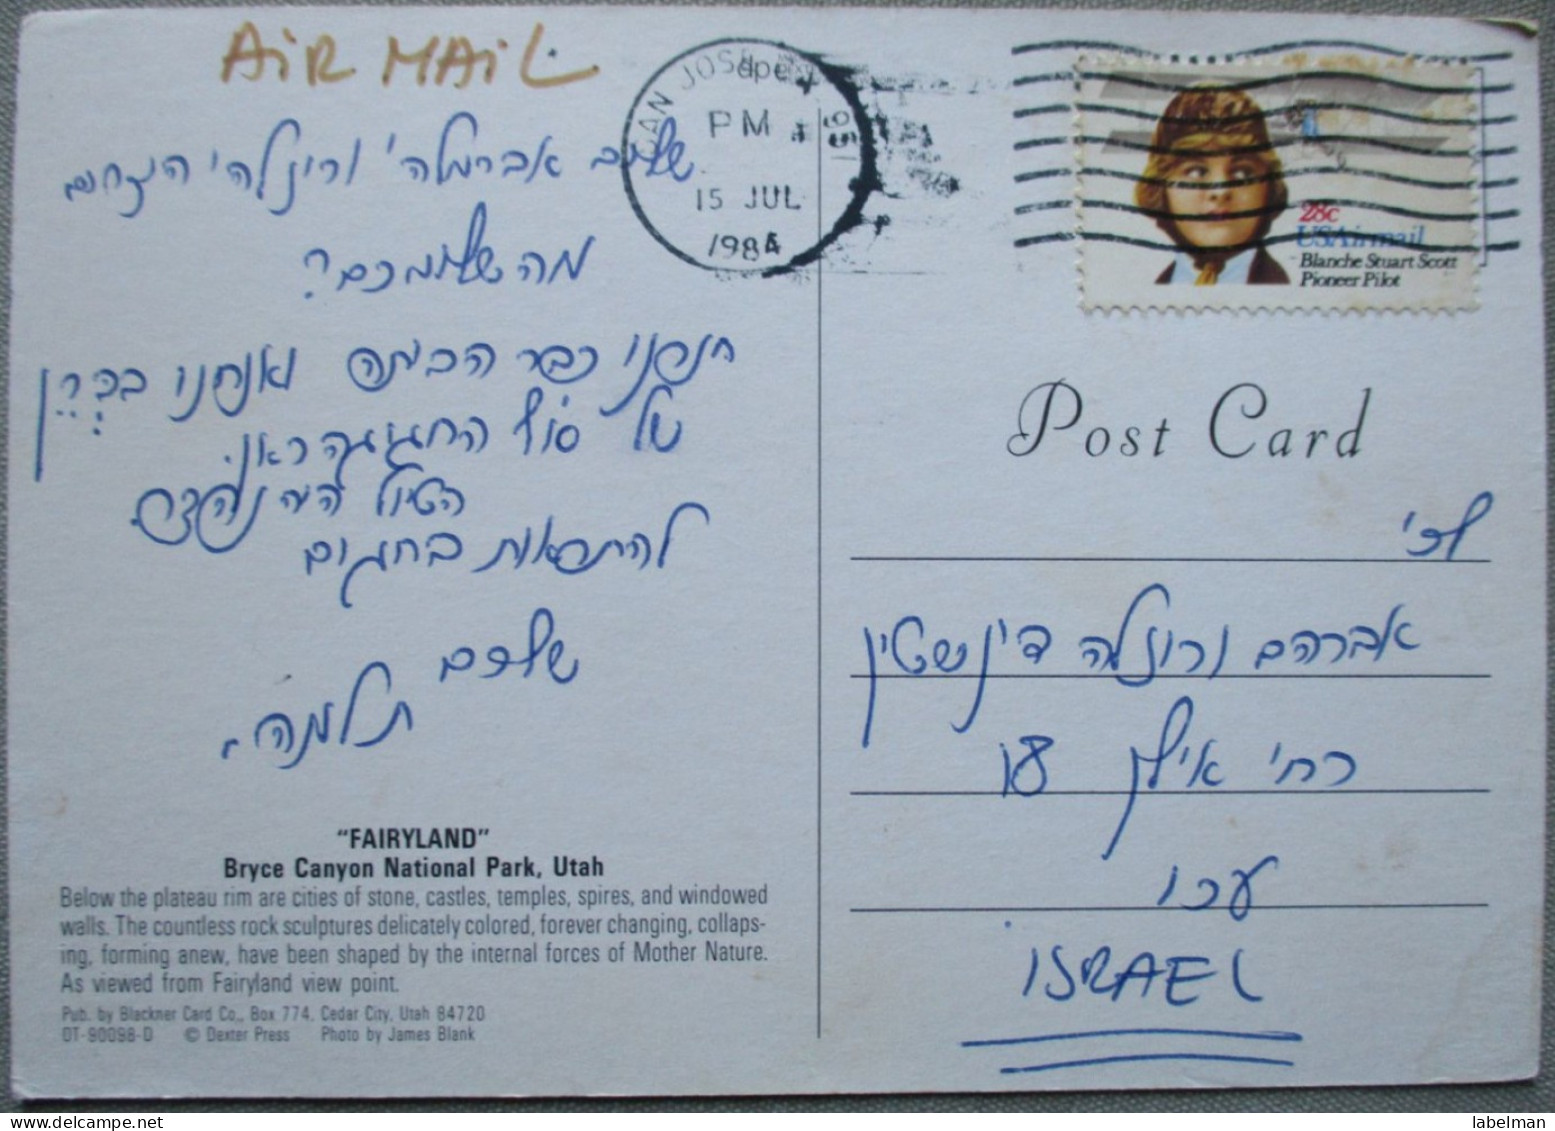 AIR MAIL
שלום אברמל'ה ורוז'לה
מה שלומכם?
חזרנו כבר הביתה ואנחנו
של סוף החגיגה
הטיול היה נהדר.
להתראות בחגים
שלום
SAN JOSE
PM
15 JUL
1984
28c
USAirmail
Blanche Stuart Scott
Pioneer Pilot
Post Card
לכ'
אברהם ורוז'לה דינשטין
רח' אילון
עכו
ISRAEL
"FAIRYLAND"
Bryce Canyon National Park, Utah
Below the plateau rim are cities of stone, castles, temples, spires, and windowed
walls. The countless rock sculptures delicately colored, forever changing, collaps-
ing, forming anew, have been shaped by the internal forces of Mother Nature.
As viewed from Fairyland view point.
Pub. by Blackner Card Co., Box 774, Cedar City, Utah 84720
DT-90098-D © Dexter Press Photo by James Blank
labelman